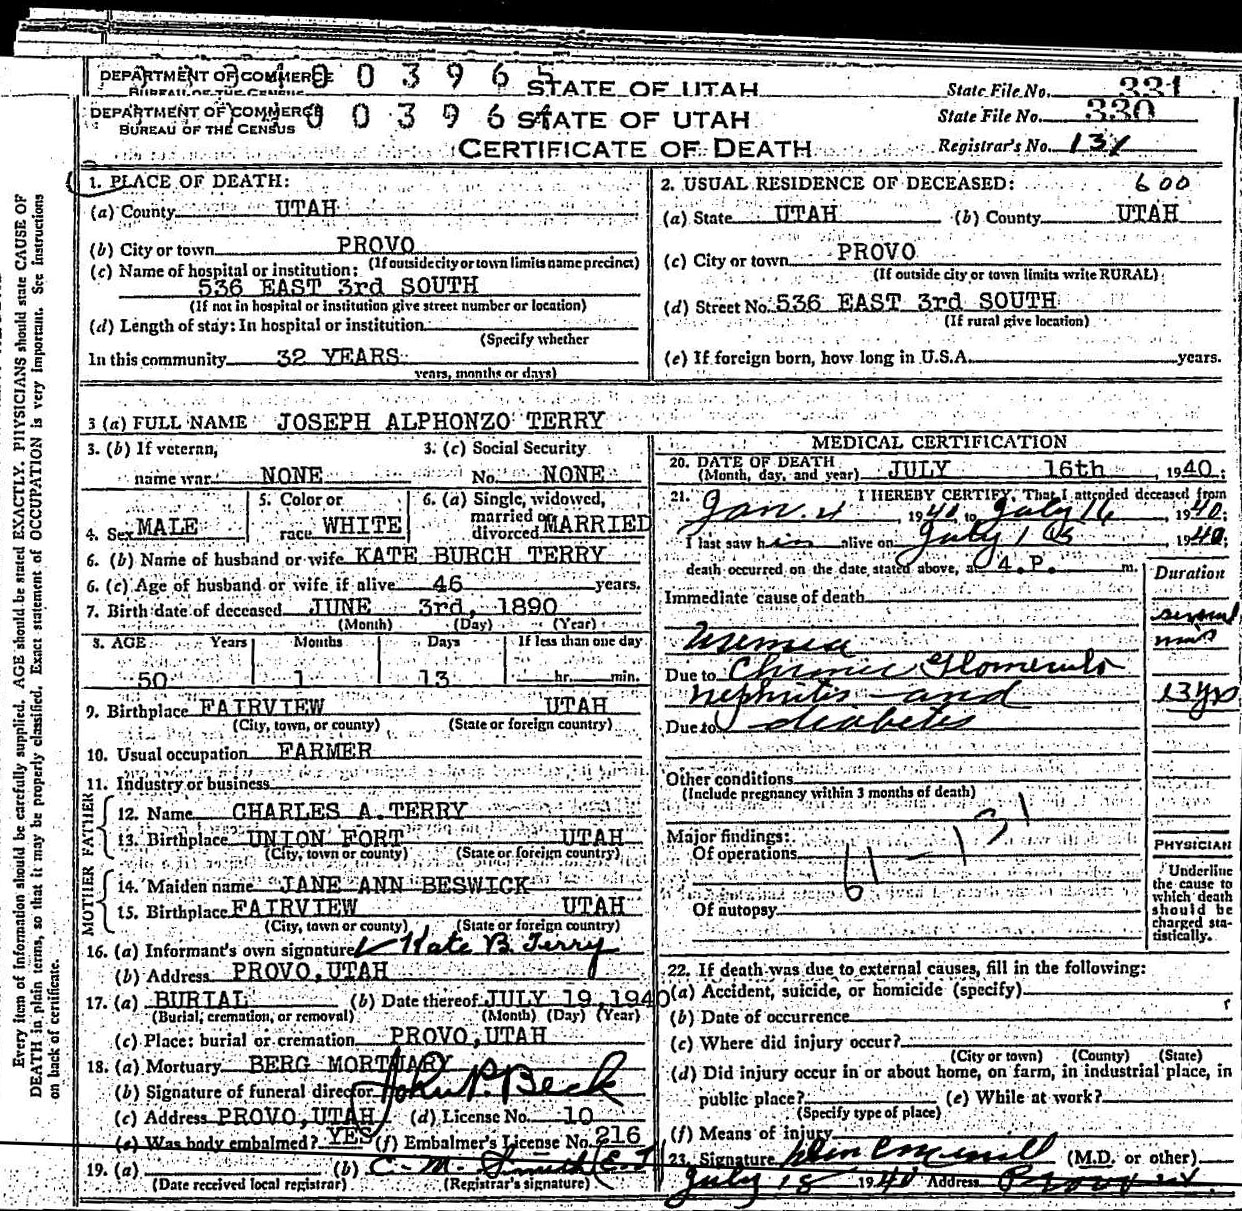 DEPARTMENT OF COMMERCE 003965 STATE OF UTAH State File No. 331
BUREAU OF THE CENSUS
DEPARTMENT OF COMMERCE 003964 STATE OF UTAH State File No. 330
BUREAU OF THE CENSUS
CERTIFICATE OF DEATH Registrar's No. 131
Every item of information should be carefully supplied. AGE should be stated EXACTLY. PHYSICIANS should state CAUSE OF
DEATH in plain terms, so that it may be properly classified. Exact statement of OCCUPATION is very important. See instructions
on back of certificate.
1. PLACE OF DEATH:
(a) County UTAH
(b) City or town PROVO
(If outside city or town limits name precinct)
(c) Name of hospital or institution:
536 EAST 3rd SOUTH
(If not in hospital or institution give street number or location)
(d) Length of stay: In hospital or institution
(Specify whether
In this community 32 YEARS
years, months or days)
2. USUAL RESIDENCE OF DECEASED: 600
(a) State UTAH (b) County UTAH
(c) City or town PROVO
(If outside city or town limits write RURAL)
(d) Street No. 536 EAST 3rd SOUTH
(If rural give location)
(e) If foreign born, how long in U.S.A. years.
3 (a) FULL NAME JOSEPH ALPHONZO TERRY
3. (b) If veteran, 3. (c) Social Security
name war NONE No. NONE
4. Sex MALE 5. Color or race WHITE 6. (a) Single, widowed, married or divorced MARRIED
6. (b) Name of husband or wife KATE BURCH TERRY
6. (c) Age of husband or wife if alive 46 years.
7. Birth date of deceased JUNE 3rd, 1890
(Month) (Day) (Year)
8. AGE Years Months Days If less than one day
50 1 13 hr. min.
9. Birthplace FAIRVIEW UTAH
(City, town, or county) (State or foreign country)
10. Usual occupation FARMER
11. Industry or business
FATHER
12. Name CHARLES A. TERRY
13. Birthplace UNION FORT UTAH
(City, town or county) (State or foreign country)
MOTHER
14. Maiden name JANE ANN BESWICK
15. Birthplace FAIRVIEW UTAH
(City, town or county) (State or foreign country)
16. (a) Informant's own signature Kate B. Terry
(b) Address PROVO, UTAH
17. (a) BURIAL (b) Date thereof JULY 19, 1940
(Burial, cremation, or removal) (Month) (Day) (Year)
(c) Place: burial or cremation PROVO, UTAH
18. (a) Mortuary BERG MORTUARY
(b) Signature of funeral director John P. Beck
(c) Address PROVO, UTAH (d) License No. 10
(e) Was body embalmed? YES (f) Embalmer's License No. 216
19. (a) (b) C. M. Smith
(Date received local registrar) (Registrar's signature)
MEDICAL CERTIFICATION
20. DATE OF DEATH
(Month, day, and year) JULY 16th, 1940;
21. I HEREBY CERTIFY, That I attended deceased from
Jan. 4, 1940, to July 16, 1940;
I last saw him alive on July 16, 1940;
death occurred on the date stated above, at 4. P. m.
Duration
Immediate cause of death
Uremia several
Due to Chronic Glomerulo
nephritis and 13 yrs
Due to diabetes
Other conditions
(Include pregnancy within 3 months of death)
Major findings:
Of operations
61 - 131
Of autopsy
PHYSICIAN
Underline
the cause to
which death
should be
charged sta-
tistically.
22. If death was due to external causes, fill in the following:
(a) Accident, suicide, or homicide (specify)
(b) Date of occurrence
(c) Where did injury occur?
(City or town) (County) (State)
(d) Did injury occur in or about home, on farm, in industrial place, in
public place? (e) While at work?
(Specify type of place)
(f) Means of injury
23. Signature (M.D. or other)
July 18 1940 Address Provo Ut.